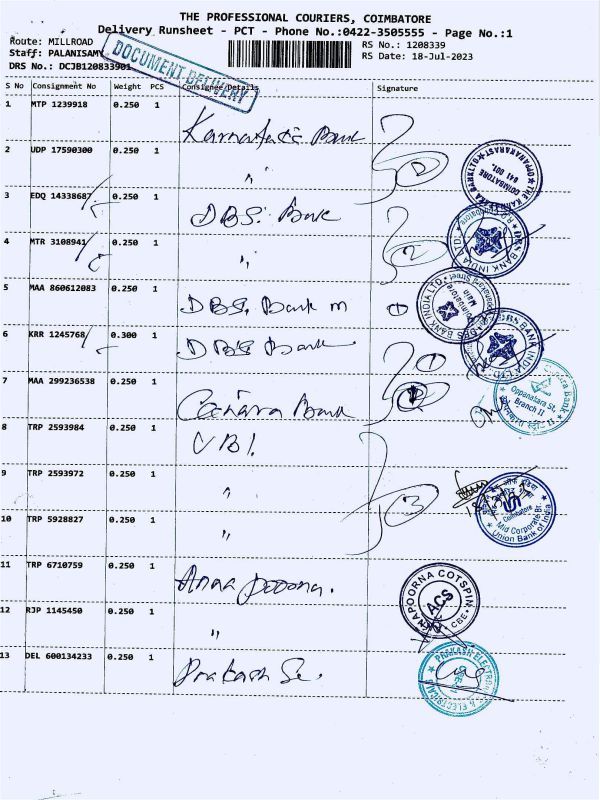 THE PROFESSIONAL COURIERS, COIMBATORE
Delivery Runsheet - PCT - Phone No.:0422-3505555 - Page No.:1
Route: MILLROAD
RS No.: 1208339
Staff: PALANISAMY
RS Date: 18-Jul-2023
DRS No.: DCJB120833901
DOCUMENT DELIVERY
S No Consignment No Weight PCS Consignee/Details Signature
1 MTP 1239918 0.250 1 Karnataka Bank
2 UDP 17590300 0.250 1 "
3 EDQ 14338687 0.250 1 DBS. Bank
4 MTR 3108941 0.250 1 "
5 MAA 860612083 0.250 1 DBS. Bank m 1
6 KRR 1245768 0.300 1 DBS Bank 1
7 MAA 299236538 0.250 1 Canara Bank
8 TRP 2593984 0.250 1 UBI.
9 TRP 2593972 0.250 1 "
10 TRP 5928827 0.250 1 "
11 TRP 6710759 0.250 1 Anna poorna.
12 RJP 1145450 0.250 1 "
13 DEL 600134233 0.250 1 Prakash Se.
2
2
3
COIMBATORE
641 001.
DBS BANK INDIA LTD.
DBS BANK INDIA LTD.
Coimbatore
Main
DBS BANK INDIA LTD.
Canara Bank
Oppanakara St,
Branch II
Coimbatore
Mid Corporate Br.
Union Bank of India
ANNAPOORNA COTSPIN
ACS
CBE
PRAKASH ELECTRONICS & ELECTRICALS